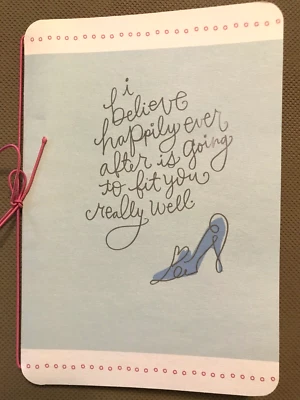 i
believe
happily ever
after is going
to fit you
really well.